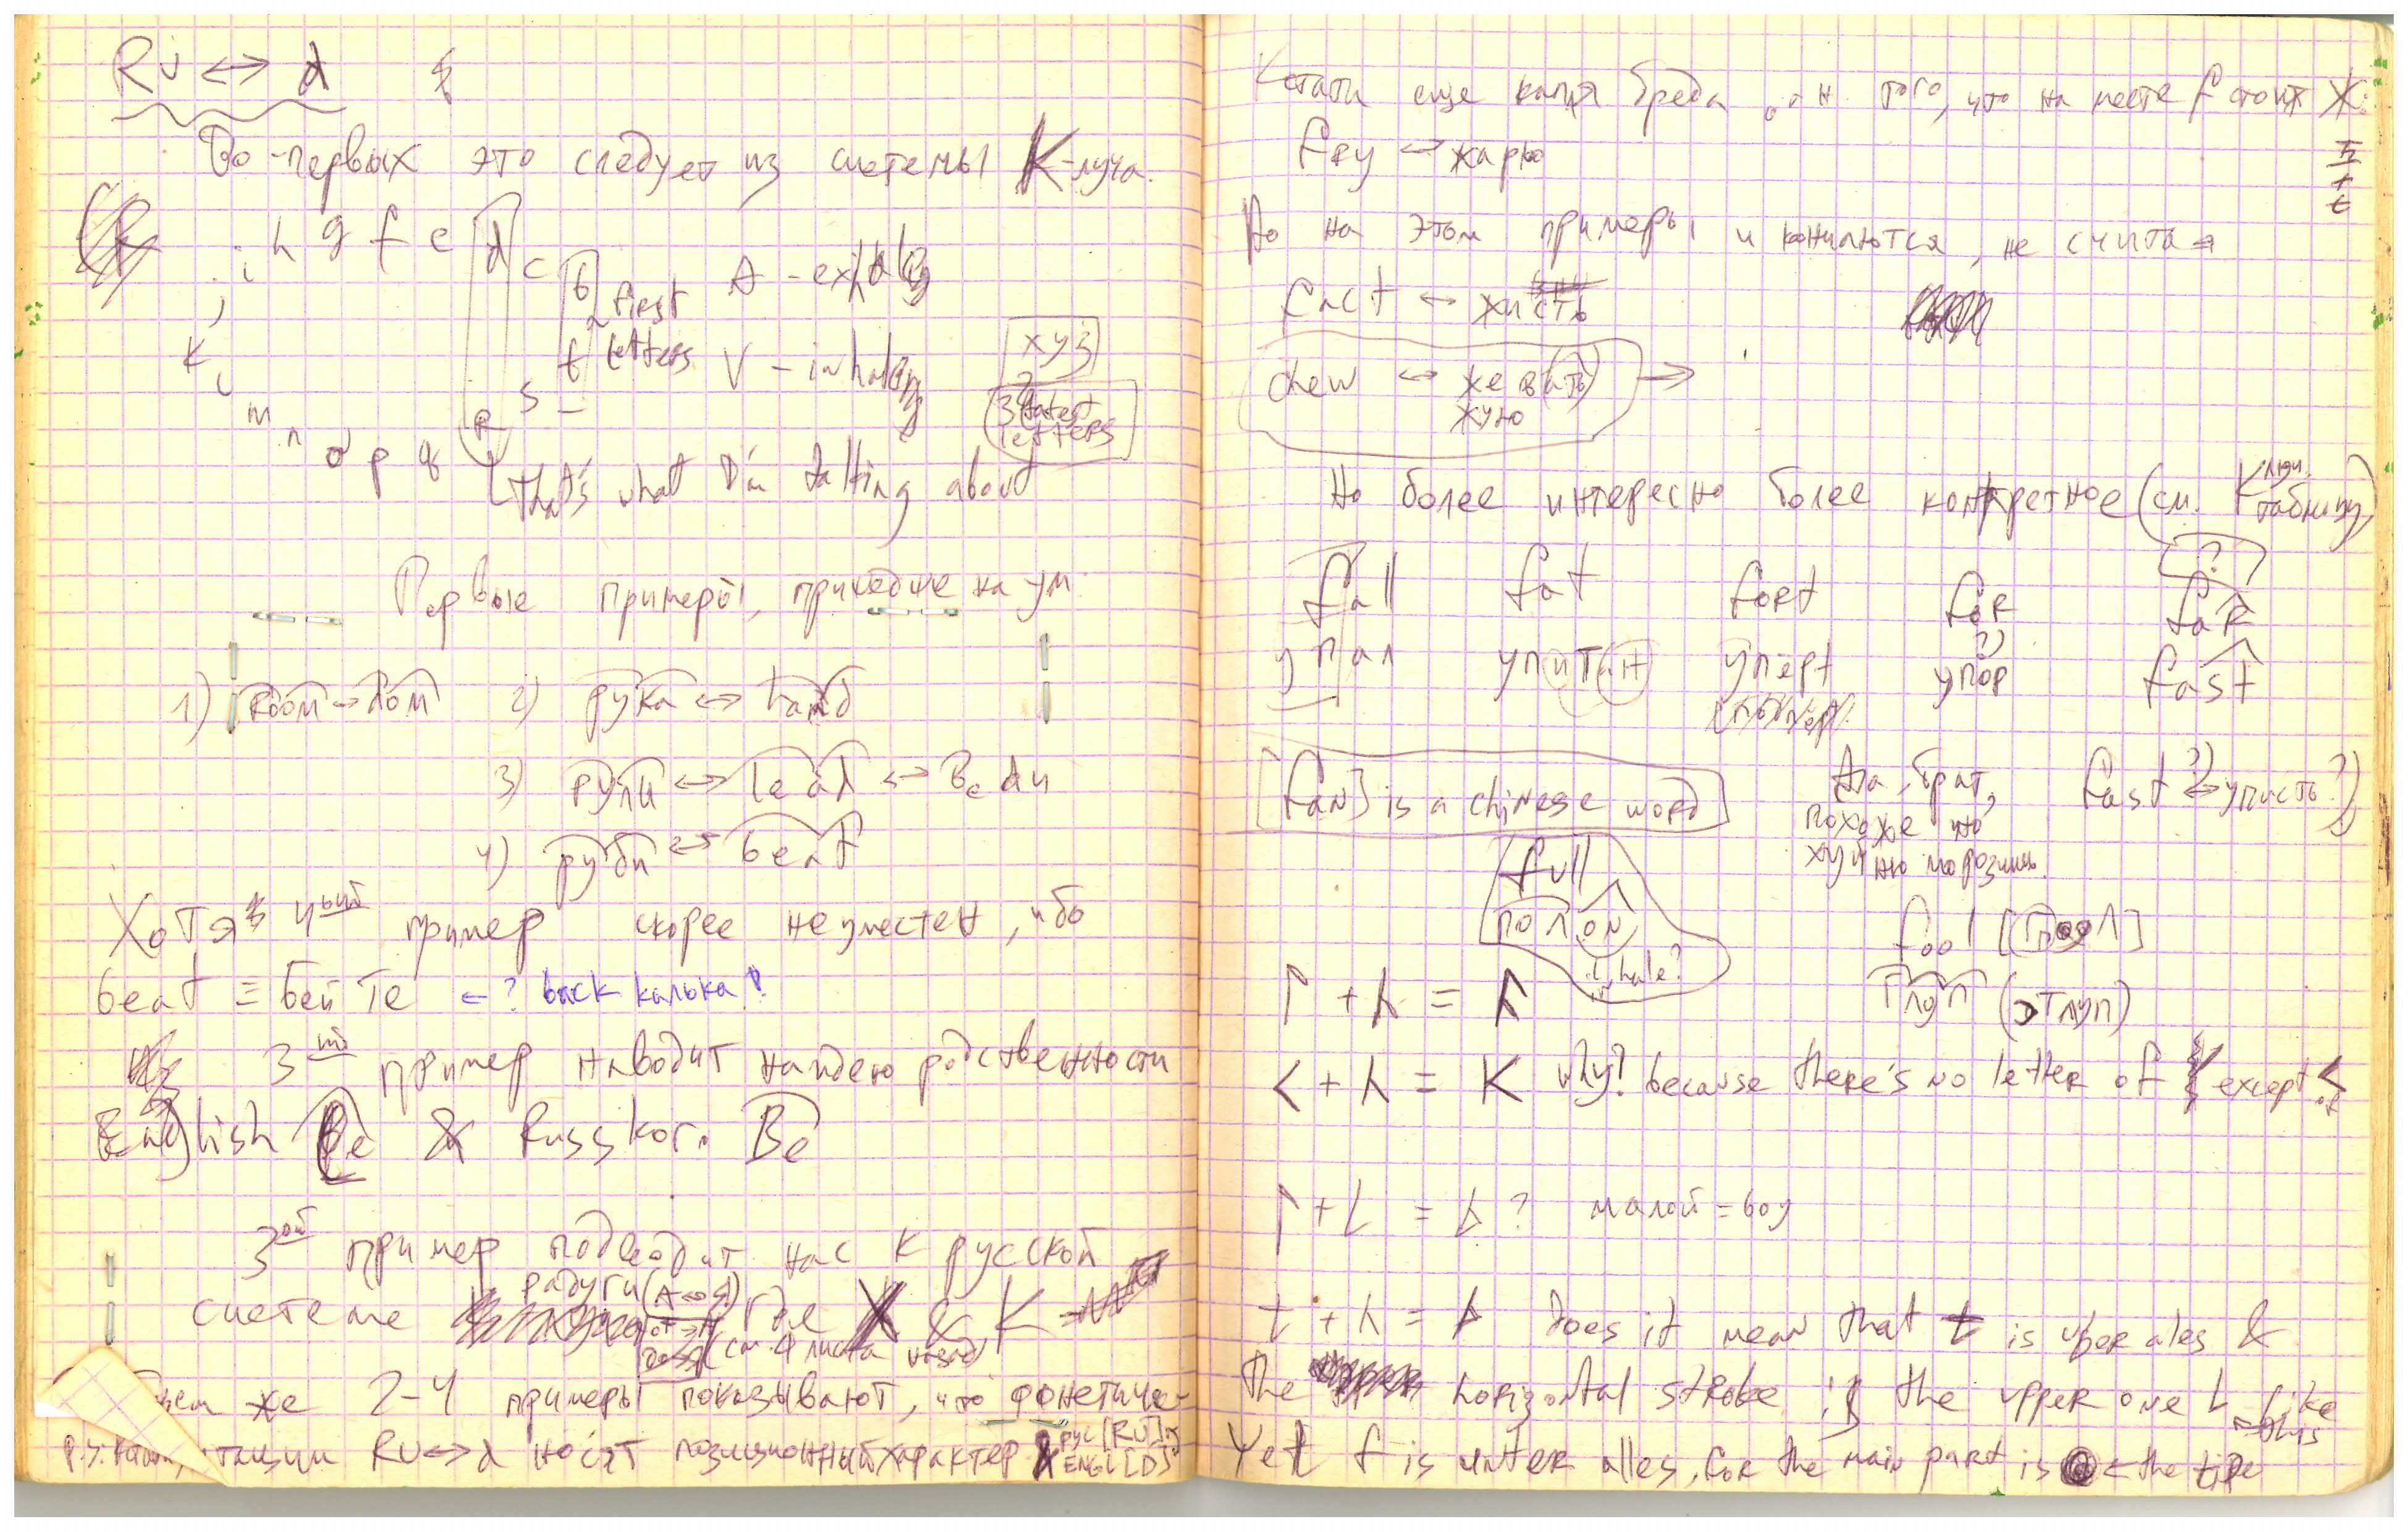 Ru ↔ d
Во-первых это следует из системы К-луча.
j i h g f e d c b first letters A - exhaling
k l m n o p q R s t V - inhaling
xyz
3 latest letters
that's what I'm talking about
Первые примеры, пришедшие на ум:
1) Room → дом 2) рука ↔ hand
3) рули ↔ lead ↔ Веди
4) руби ↔ beat
Хотя 4ый пример скорее неуместен, ибо
beat ≡ бейте ← ? back калька!
3ий пример наводит на идею родственности
English Be & Russkogo Ве
3ий пример подводит нас к русской
системе радуги (А↔Я) где & К
(см. 4 листа назад)
же 2-4 примеры показывают, что фонетиче-
Ru↔d носят позиционный характер рус [RU]
ENGL [D]
Кстати еще капля бреда, от того, что на месте f стоит Ж:
fry ↔ жарю
Но на этом примеры и кончаются, не считая
fact ↔ жисть
chew ↔ жевать →
жую
Но более интересно более конкретное (см. Ключ. таблицу)
fall fat fort for far ?
упал упитан упёрт упор fast
[fan] is a chinese word
Да, брат, похоже что хуйню морозишь.
fast ↔ упасть?
full
полон
whole?
fool
глуп (отлуп)
Г + Λ = 
< + Λ = K why? because there's no letter of except <
Г + L = b ? малой = boy
t + Λ = Does it mean that t is uber ales &
The horizontal stroke is the upper one like this
Yet f is unter alles, for the main part is ← the